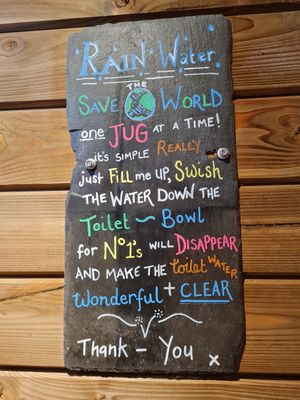 RAIN Water
THE
SAVE WORLD
one JUG AT A TIME!
it's SIMPLE REALLY
just Fill me UP, SWish
THE WATER DOWN THE
Toilet ~ Bowl
for No1's WILL DISAPPEAR
AND MAKE THE toilet WATER
Wonderful + CLEAR
Thank - You x